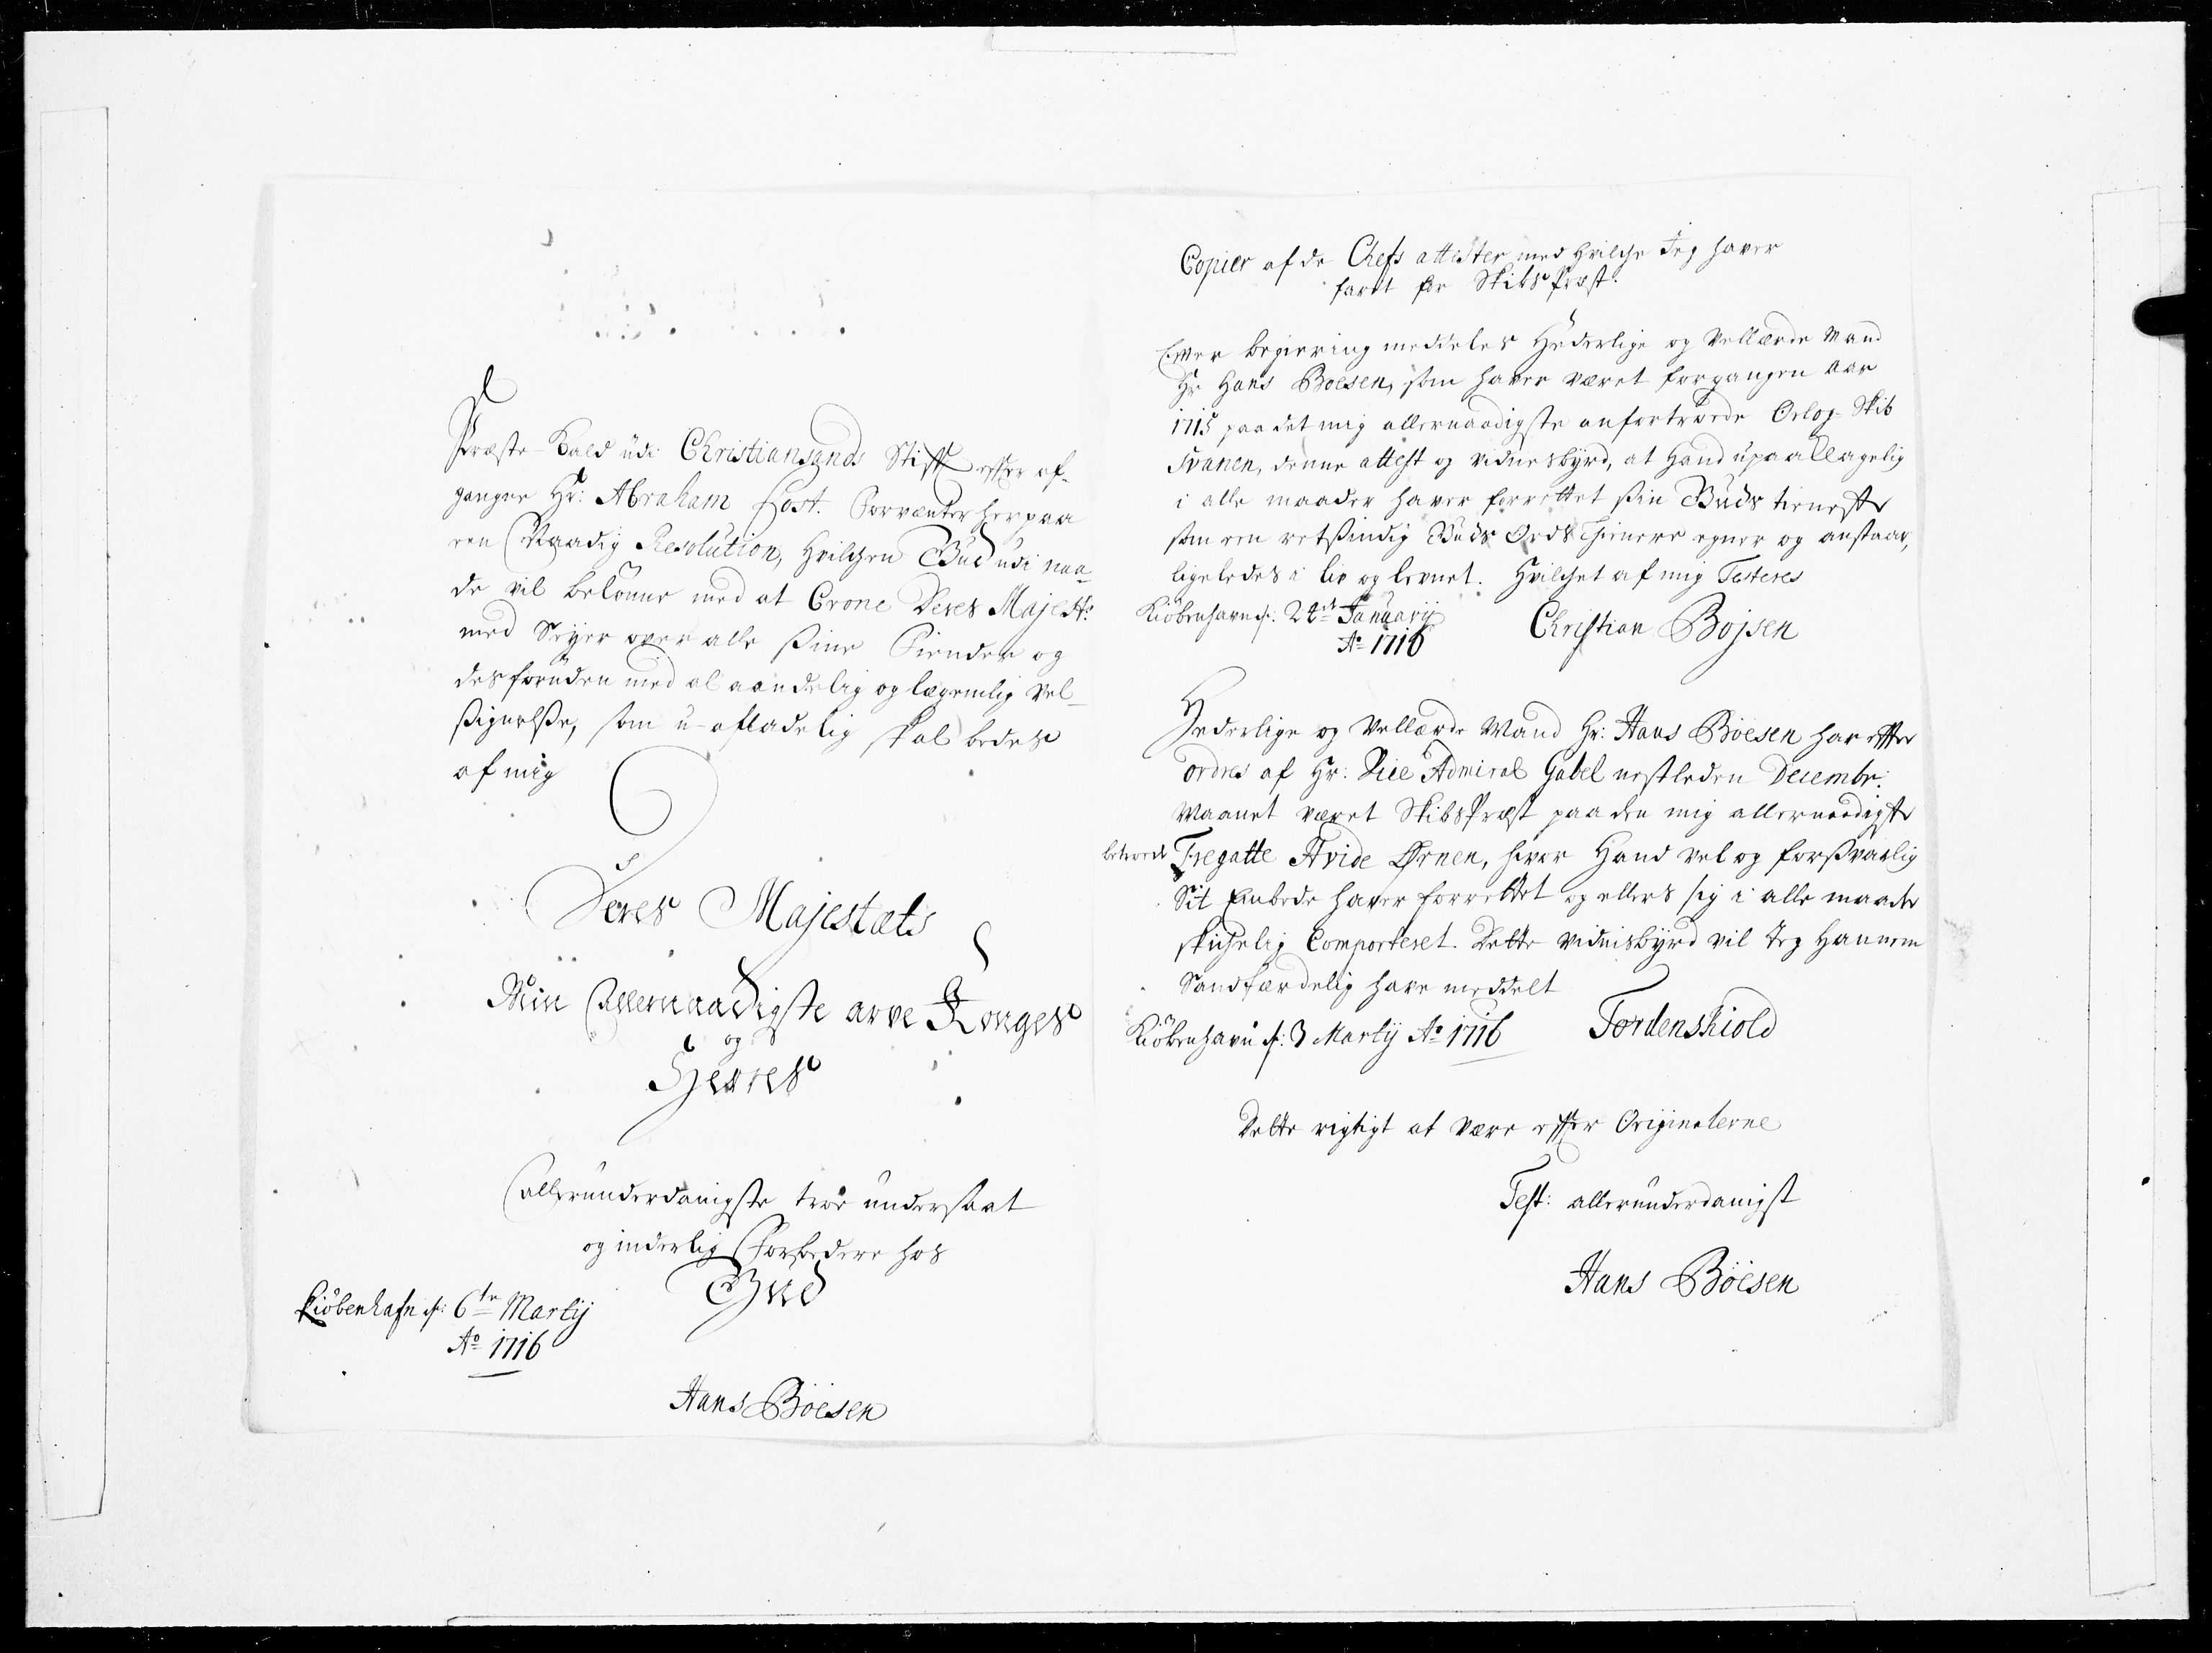 Præste-Kald udi Christiansands Stift effter af-
gangne Hr: Abraham Host. Forventer herpaa
een Naadig Resolution, hvilchen Gud udi naa-
de vil belönne med at Crone Deres Majestt:
med Seyer over alle sine Fiender og
desforuden med al aandelig og lægemlig vel-
signelse, som u-afladelig skal bedes
af mig
Deres Majestæts
Min Allernaadigste arve Konges
og
Herres
allerunderdanigste troe undersaat
og inderlig Forbedere hos
Gud
Kiöbenhafn d: 6te Martij
Ao 1716
Hans Böesen
Copier af de Chefs attester med hvilche Jeg haver
faret for Skibs Præst.
Effter begiering meddeles Hæderlige og Vellærde Mand
Hr Hans Boesen, som haver været forgangen Aar
1715 paa det mig allernaadigste anfortroede Orlog-Skib
Svanen, denne attest og vidnesbyrd, at Hand upaaklagelig
i alle maader haver forrettet sin Guds tieneste
som een retsindig Guds Ords Thienere egner og anstaar,
ligeledes i liv og levnet. Hvilchet af mig Testeres
Kiöbenhavn d: 24de Januarij
Ao 1716
Christian Bojsen
Hederlige og Vellærde Mand Hr: Hans Böesen har effter
ordres af Hr: Vice Admiral Gabel nestleden Decembr:
Maanet været Skibs Præst paa den mig allernaadigste
betroede Fregatte Hvide Ørnen, hvor Hand vel og forsvarlig
Sit Embede haver forrettet og ellers sig i alle maader
skichelig Comporteret. Dette vidnisbyrd vil Jeg Hannem
Sandfærdelig have meddelt
Kiöbenhavn d: 3 Martij Ao 1716
Tordenskiold
Dette rigtigt at være effter Originalerne
Test: allerunderdanigst
Hans Böesen